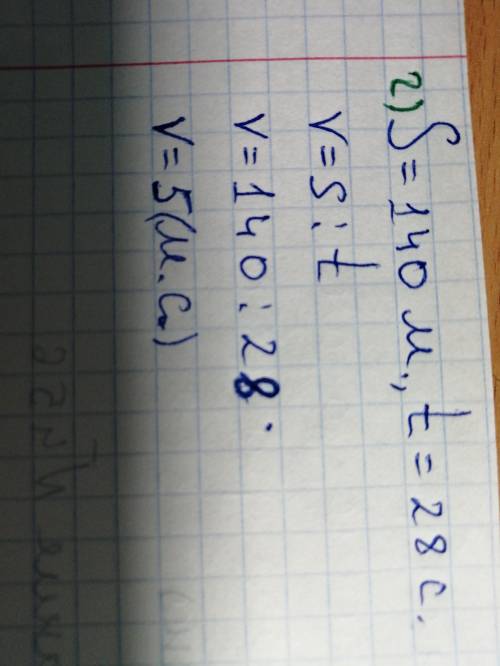 г) S = 140 м., t = 28 с.
v = s : t
v = 140 : 28.
v = 5 (м.с)